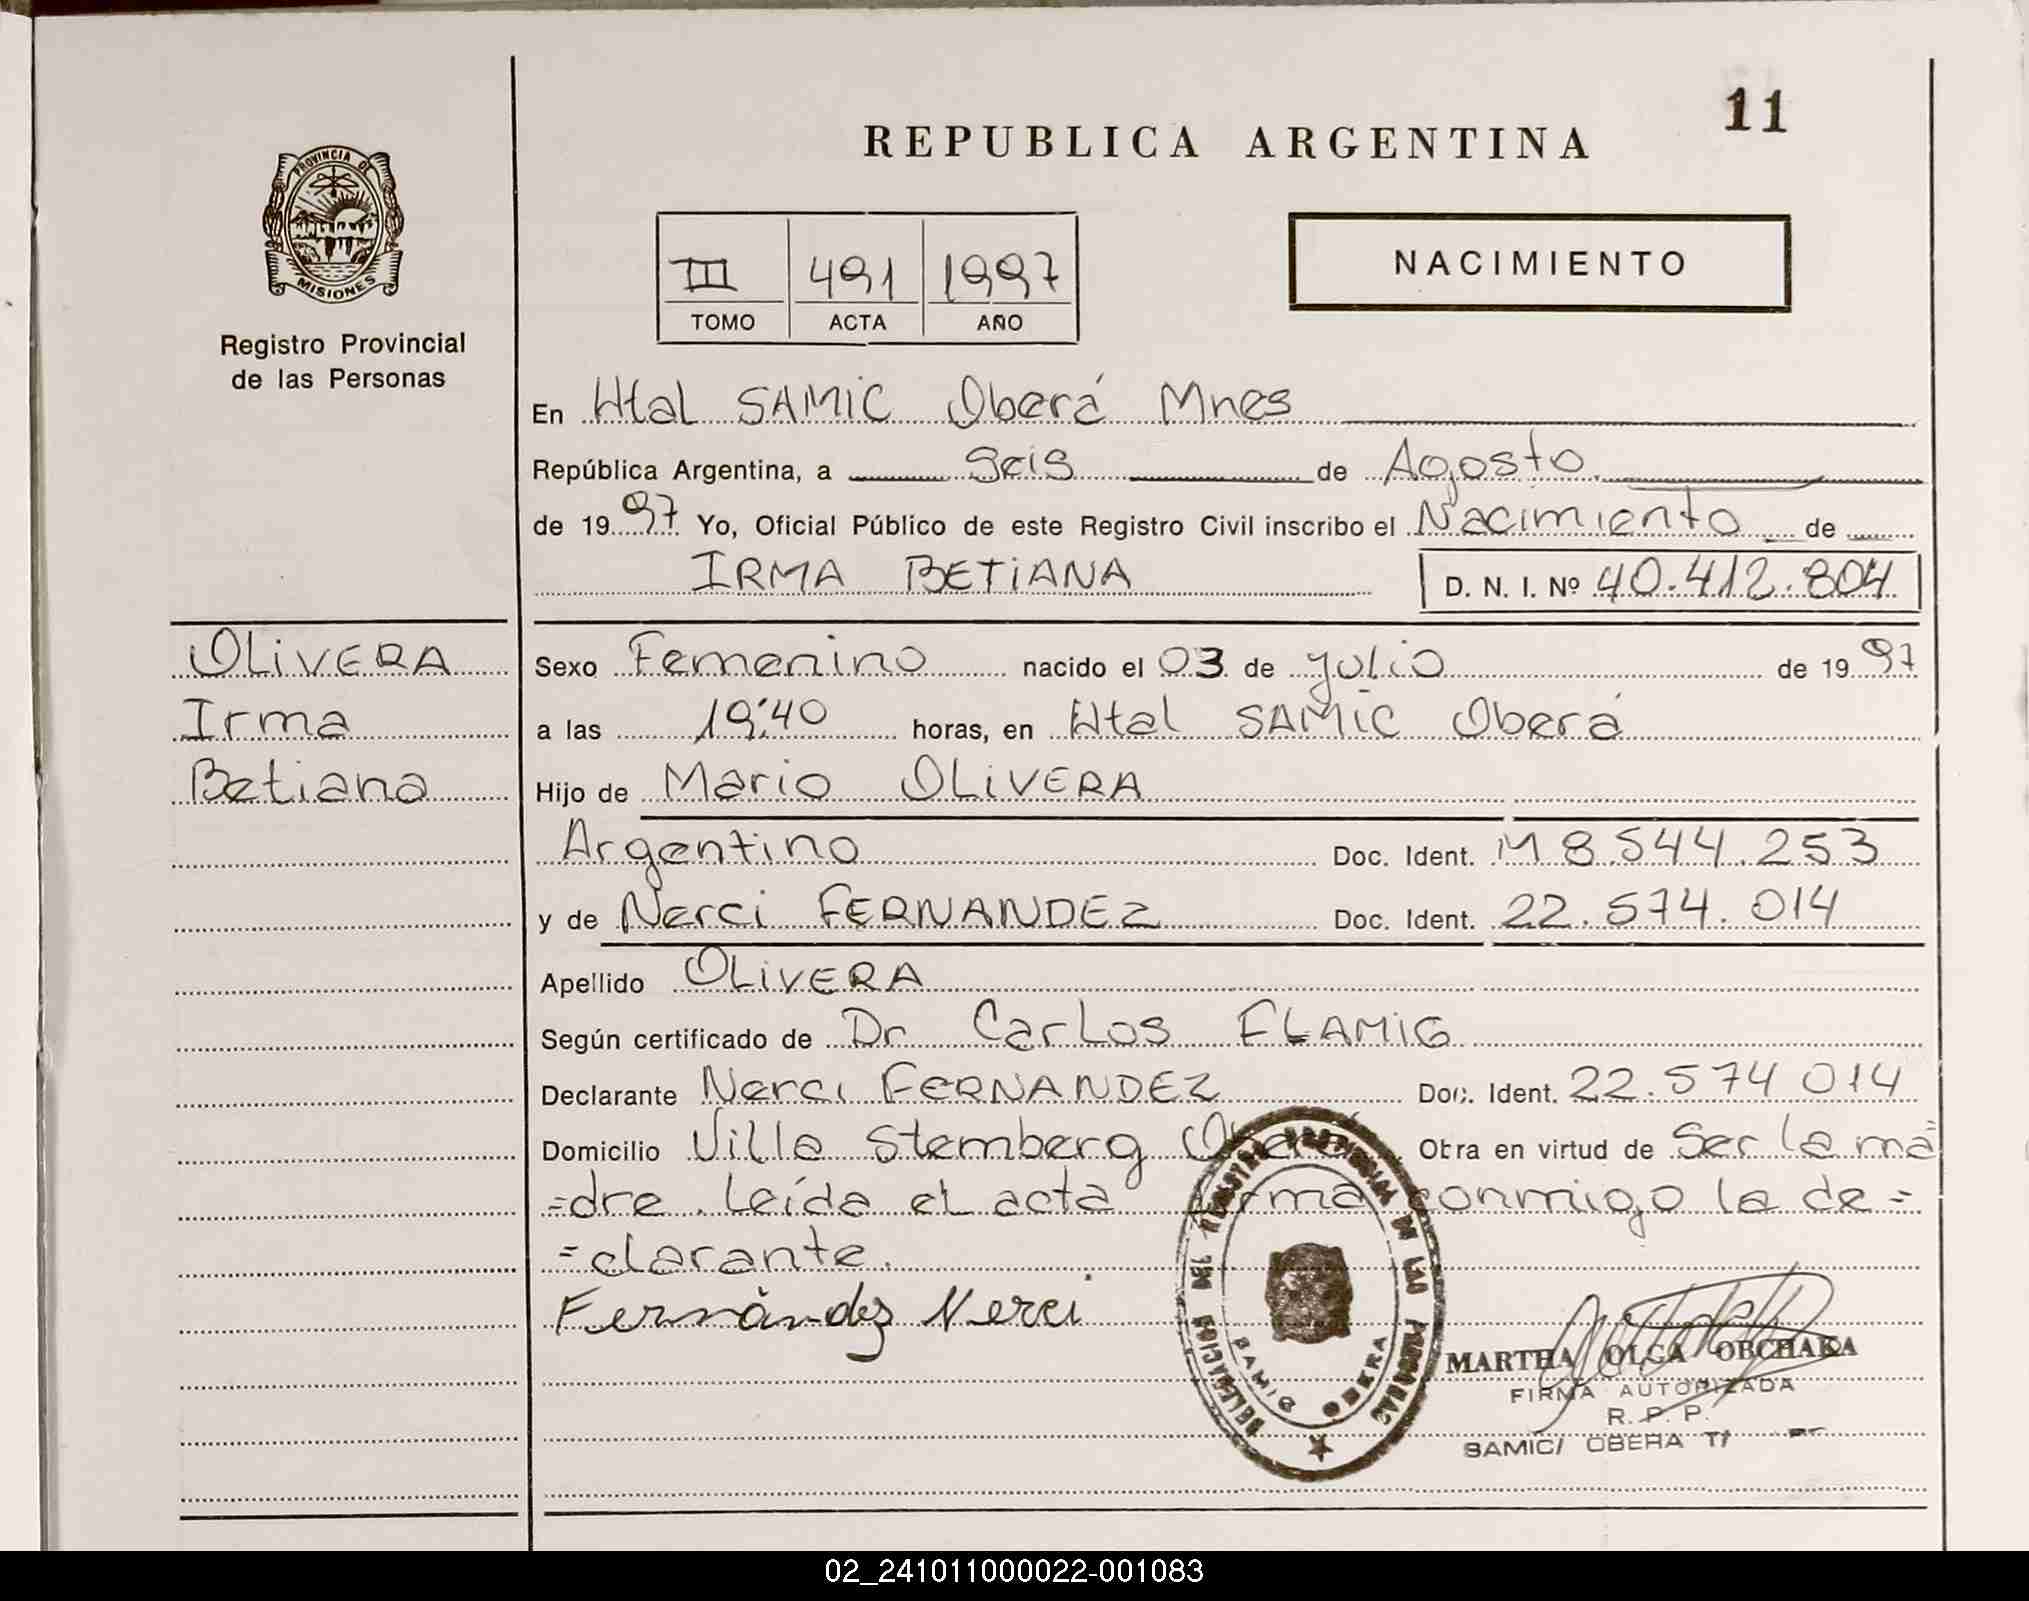 11
REPUBLICA ARGENTINA
PROVINCIA DE
MISIONES
Registro Provincial
de las Personas
NACIMIENTO
III 491 1997
TOMO ACTA AÑO
En Htal SAMIC Oberá Mnes
República Argentina, a Seis de Agosto
de 1997 Yo, Oficial Público de este Registro Civil inscribo el Nacimiento de
IRMA BETIANA D. N. I. Nº 40.412.804
OLIVERA
Irma
Betiana
Sexo Femenino nacido el 03 de julio de 1997
a las 19:40 horas, en Htal SAMIC Oberá
Hijo de Mario OLIVERA
Argentino Doc. Ident. M 8.544.253
y de Nerci FERNANDEZ Doc. Ident. 22.574.014
Apellido OLIVERA
Según certificado de Dr Carlos FLAMIG
Declarante Nerci FERNANDEZ Doc. Ident. 22.574 014
Domicilio Villa Stemberg Oberá Obra en virtud de Ser la ma
=dre. Leída el acta firma conmigo la de=
=clarante.
Fernández Nerci
DELEGACION DEL REGISTRO PROVINCIAL DE LAS PERSONAS
SAMIC OBERA
MARTHA OLGA OBCHAKA
FIRMA AUTORIZADA
R. P. P.
SAMIC/ OBERA
02_241011000022-001083